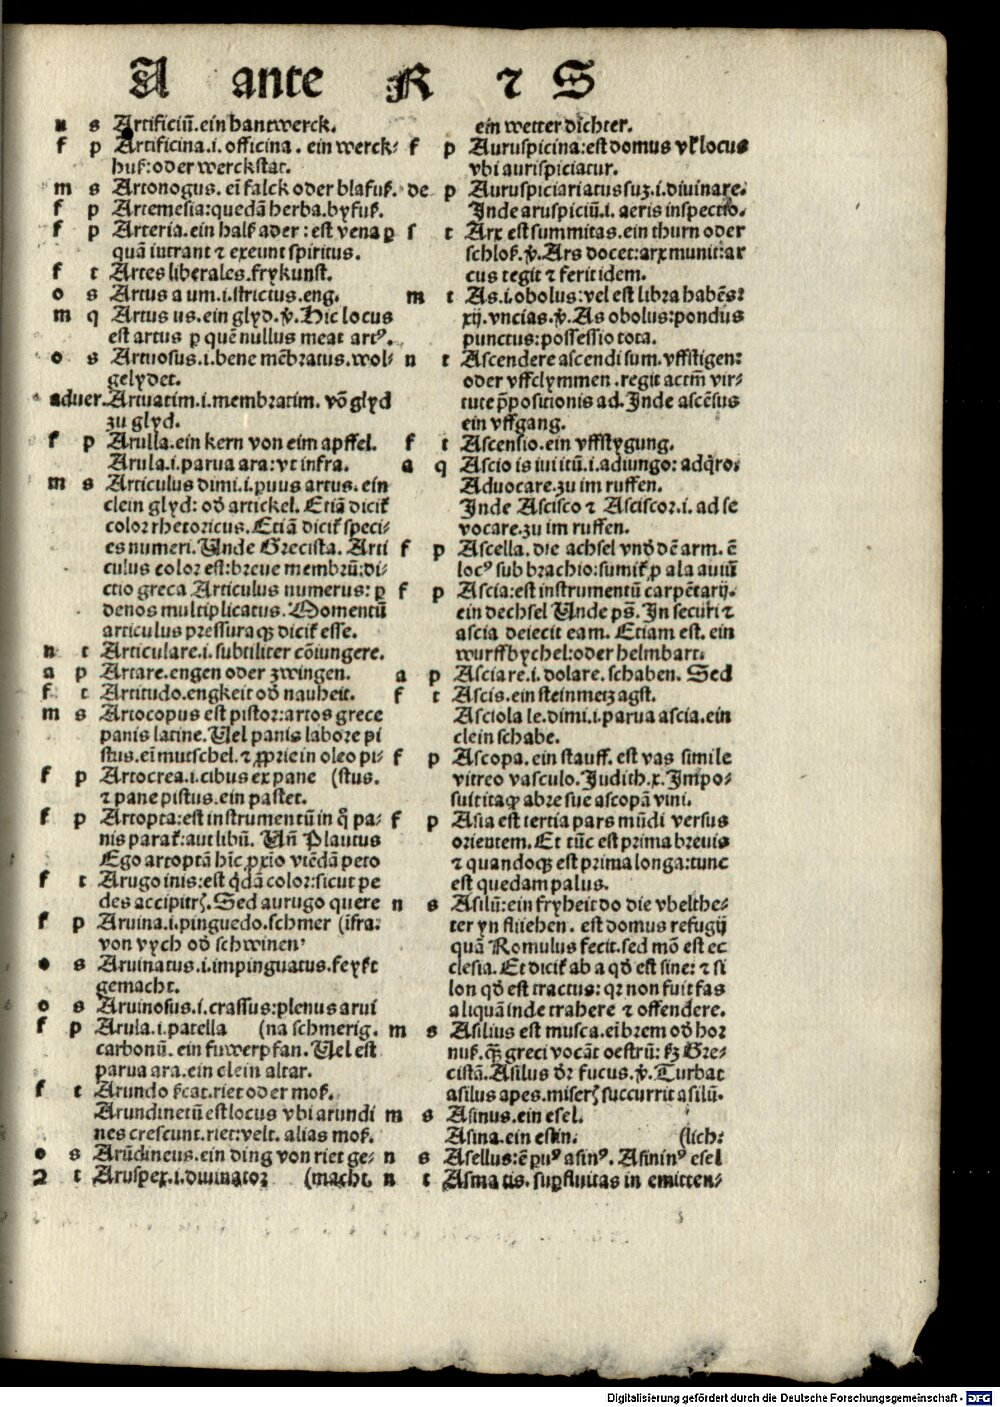 A ante R ⁊ S
n s Artificiū.ein hantwerck.
f p Artificina.i.officina. ein werck-
huß:oder werckstat.
m s Artonogus. eī falck oder blafuß.
f p Artemesia:quedā herba.byfuß.
f p Arteria.ein halß ader:est vena ꝑ
quā intrant ⁊ exeunt spiritus.
f t Artes liberales.frykunst.
o s Artus a um.i.strictus.eng.
m q Artus us.ein glyd.ꝟ.Hic locus
est artus ꝑ quē nullus meat artꝰ.
o s Artuosus.i.bene mēbratus.wol-
gelydet.
aduer.Artuatim.i.membratim. vō glyd
zu glyd.
f p Arulla.ein kern von eim apffel.
Arula.i.parua ara:vt infra.
m s Articulus dimi.i.ꝑuus artus. ein
clein glyd: oď artickel. Etiā dicit᷑
color rhetoricus.Etiā dicit᷑ speci-
es numeri.Unde Grecista. Arti
culus color est:breue membrū:di-
ctio greca Articulus numerus: ꝑ
denos multiplicatus.Momentū
articulus pressuraqꝫ dicit᷑ esse.
n t Articulare.i.subtiliter cōiungere.
a p Artare.engen oder zwingen.
f t Artitudo.engkeit oď nauheit.
m s Artocopus est pistor:artos grece
panis latine.Uel panis labore pi
stus.eī mutschel.⁊ ꝓprie in oleo pi-
f p Artocrea.i.cibus ex pane (stus.
⁊ pane pistus.ein pastet.
f p Artopta:est instrumentū in q̄ pa-
nis parat᷑:aut libū. Uñ Plautus
Ego artoptā hīc ꝓxīo vīēdā peto
f t Arugo inis:est q̇dā color:sicut pe
des accipitrꝭ.Sed aurugo quere
f p Aruina.i.pinguedo.schmer (īfra:
von vych oď schwinen
o s Aruinatus.i.impinguatus.feyßt
gemacht.
o s Aruinosus.i.crassus:plenus arui
f p Arula.i.patella (na schmerig.
carbonū. ein fuwerpfan.Uel est
parua ara.ein clein altar.
f t Arundo ßcat.riet oder moß.
Arundinetū est locus vbi arundi
nes crescunt.riet:velt. alias moß.
o s Arūdineus.ein ding von riet ge-
2 t Aruspex.i.diuinator (macht.
ein wetter dichter.
f p Auruspicina:est domus vl᷑ locus
vbi aurispiciatur.
de p Auruspiciari atus suꝫ.i.diuinare.
Inde aruspiciū.i. aeris inspectio.
f t Arx est summitas.ein thurn oder
schloß.ꝟ.Ars docet:arx munit:ar
cus tegit ⁊ ferit idem.
m t As.i.obolus:vel est libra habēs:
xij.vncias.ꝟ.As obolus:pondus
punctus:possessio tota.
n t Ascendere ascendi sum.vffstigen:
oder vffclymmen.regit actm̄ vir-
tute p̄positionis ad.Inde ascēsus
ein vffgang.
f t Ascensio.ein vffstygung.
a q Ascio is iui itū.i.adiungo: adq̇ro.
Aduocare.zu im ruffen.
Inde Ascisco ⁊ Asciscor.i. ad se
vocare.zu im ruffen.
f p Ascella. die achsel vnď dē arm. ē
locꝰ sub brachio:sumit᷑ ꝓ ala auiū
f p Ascia:est instrumentū carpētarij.
ein dechsel Unde ps̄. In securi ⁊
ascia deiecit eam. Etiam est. ein
wurffbychel:oder helmbart.
a p Asciare.i.dolare.schaben. Sed
f t Ascis.ein steinmetz agst.
Asciola le.dimi.i.parua ascia.ein
clein schabe.
f p Ascopa.ein stauff. est vas simile
vitreo vasculo.Judith.x.Impo-
suit itaqꝫ abre sue ascopā vini.
f p Asia est tertia pars mūdi versus
orientem. Et tūc est prima breuis
⁊ quandoqꝫ est prima longa:tunc
est quedam palus.
n s Asilū:ein fryheit do die vbelthe-
ter yn fliiehen. est domus refugij
quā Romulus fecit.sed mō est ec
clesia. Et dicit᷑ ab a qď est sine: ⁊ si
lon qď est tractus: qꝛ non fuit fas
aliquā inde trahere ⁊ offendere.
m s Asilius est musca.ei brem oď hor
nuß.qꝫ greci vocāt oestrū: ßꝫ Gre-
cistā.Asilus ďr fucus.ꝟ.Turbat
asilus apes.miserꝭ succurrit asilū.
m s Asinus.ein esel.
Asina.ein eslin. (lich:
n s Asellus:ē ꝑuꝰ asinꝰ. Asininꝰ esel
n t Asma tis. suꝑfluitas in emitten-
Digitalisierung gefördert durch die Deutsche Forschungsgemeinschaft - DFG